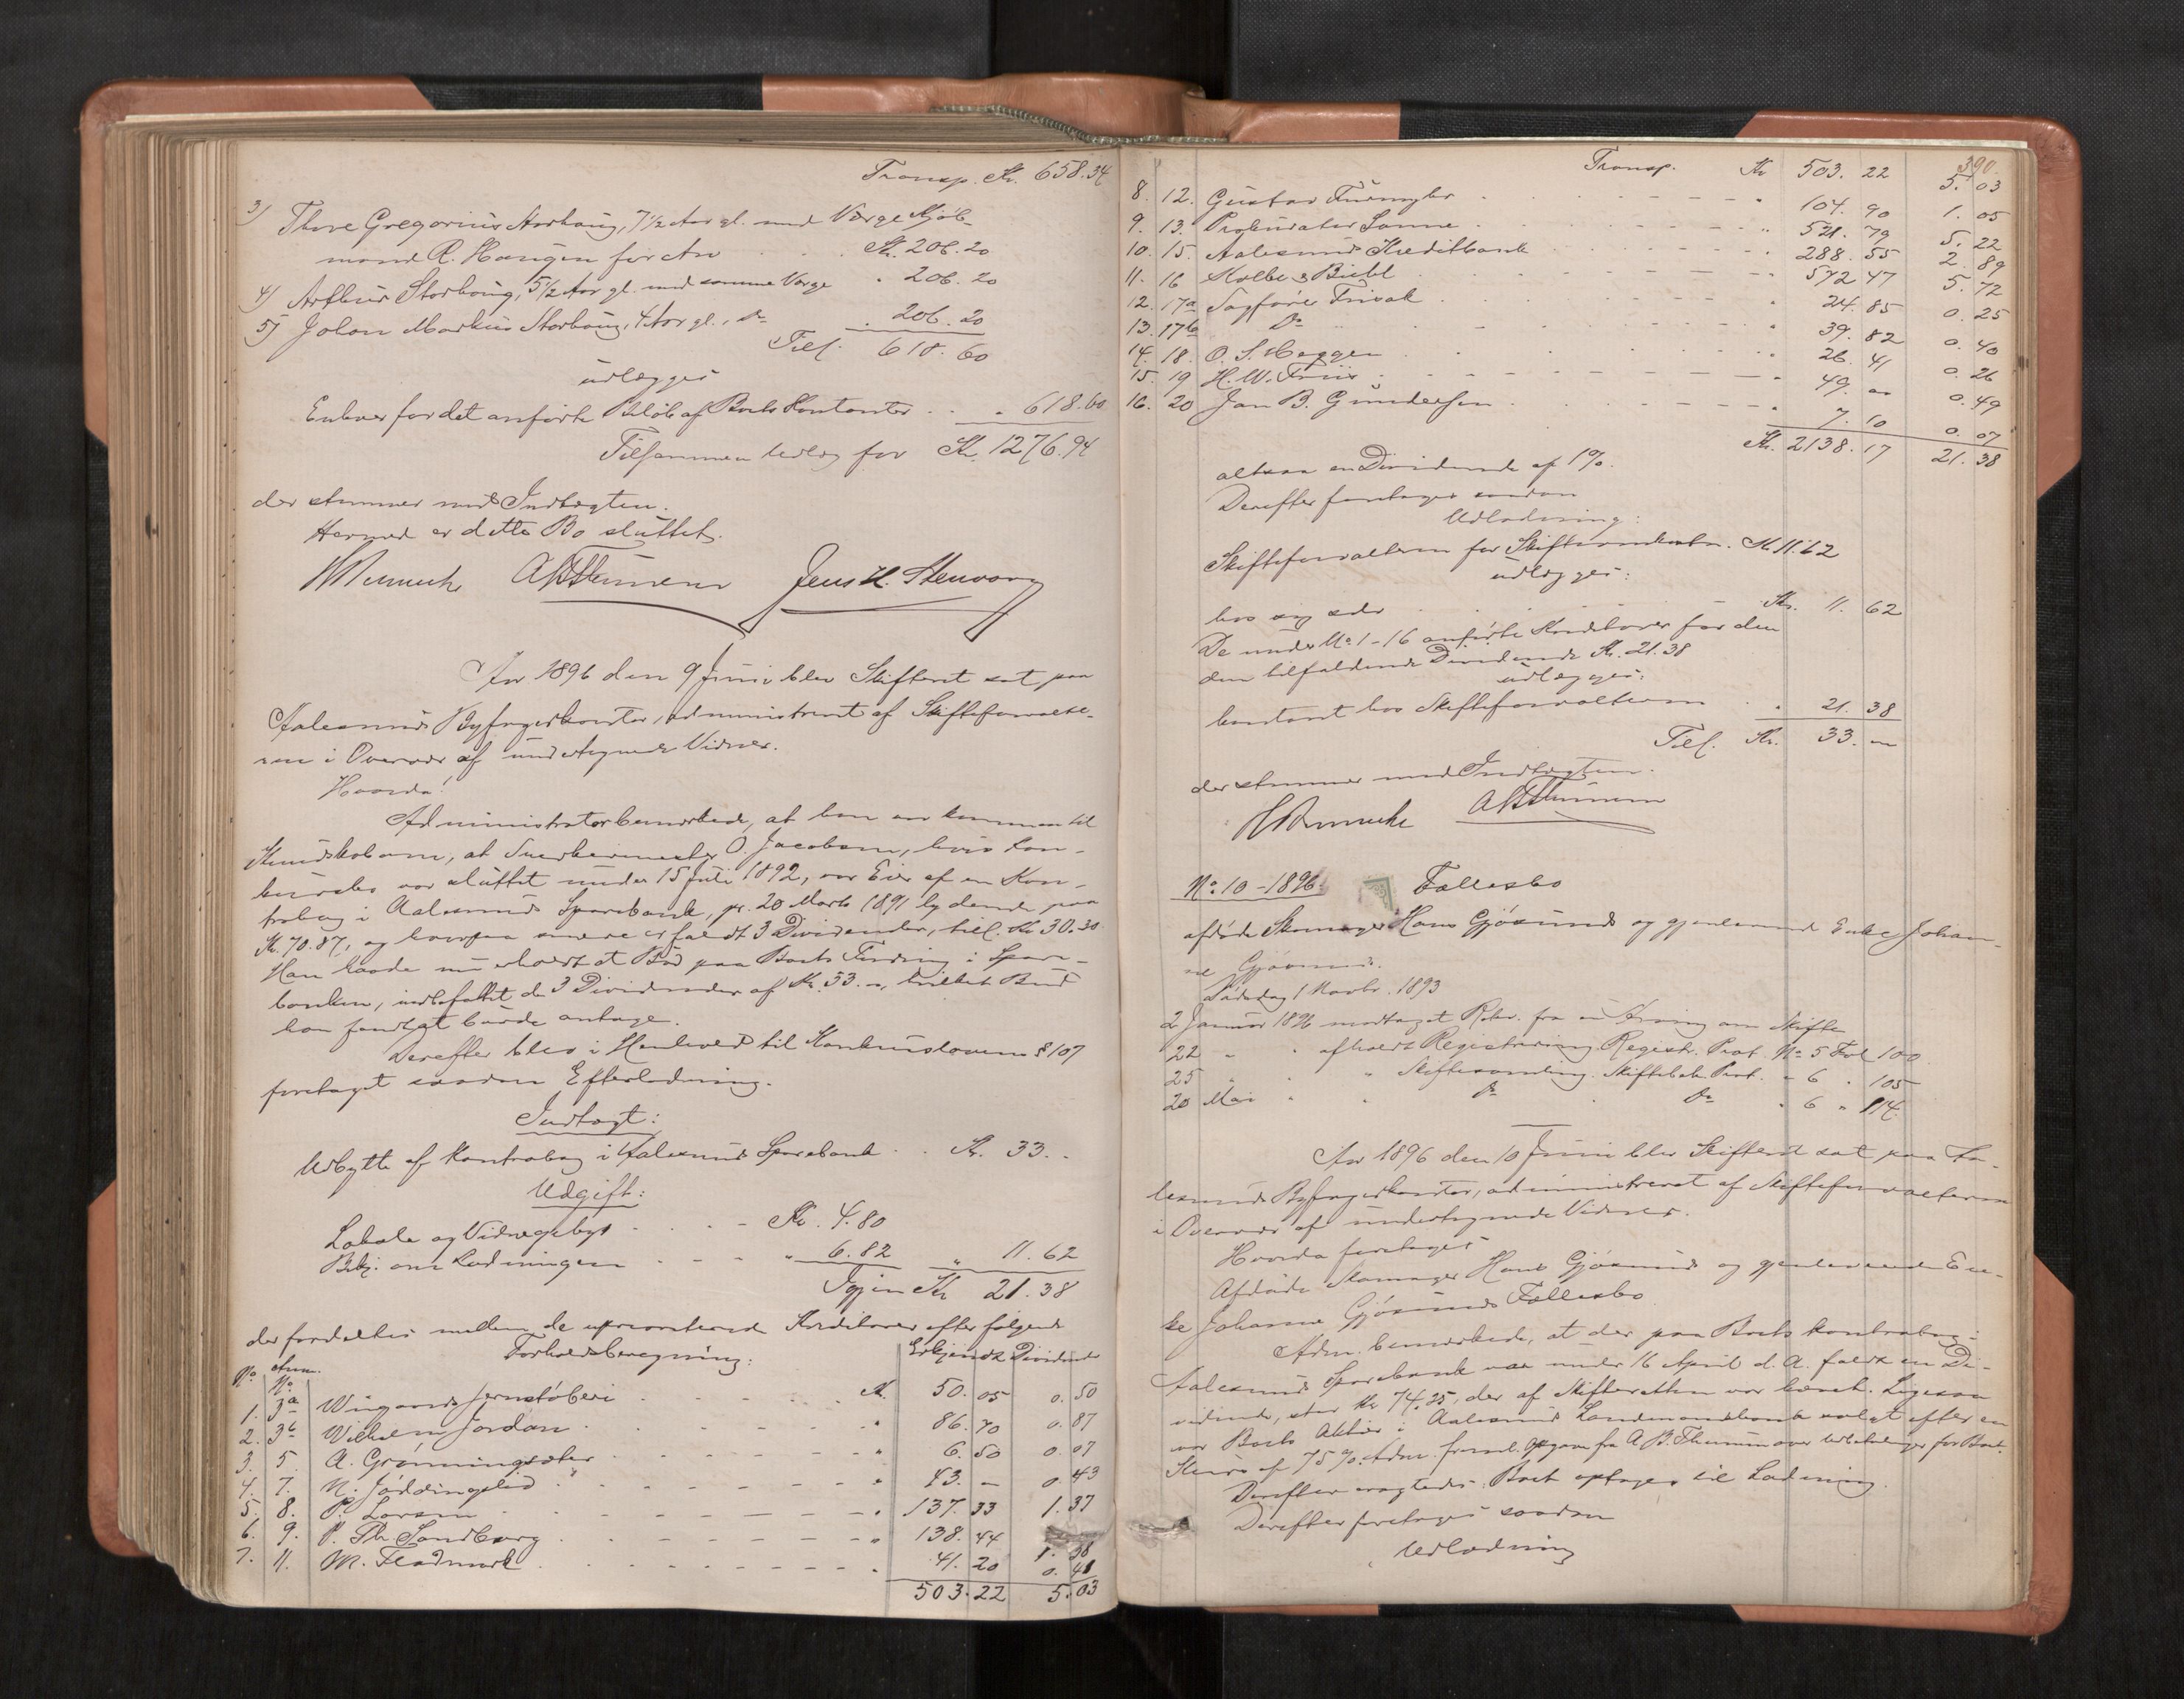 Transp. Kr. 658.34
3) Thore Gregorius Storhaug, 7 1/2 Aar gl. med Værge Kjøb-
mand R. Haugen for Arv . . . Kr. 206.20
4) Arthur Storhaug, 5 1/2 Aar gl. med samme Værge " 206.20
5) Johan Markus Storhaug, 4 Aar gl., Do " 206.20
Till. 618.60
udlægges
Enhver for det anførte Beløb af Boets Kontanter . . " 618.60
Tilsammen Udlæg for Kr. 1276.94
der stemmer med Indtægten.
Hermed er dette Bo sluttet.
Jens H. Stenvaag
Aar 1896 den 9 Juni blev Skifteret sat paa
Aalesunds Byfogedkontor, administreret af Skifteforvalte-
ren i Overvær af undertegnede Vidner.
Hvorda!
Administrator bemærkede, at han er kommen til
Kundskab om, at Snedkermester O. Jacobsen, hvis Kon-
kursbo var sluttet under 15 Juli 1892, var Eier af en Kon-
trabog i Aalesunds Sparebank, pr. 20 Marts 1891 lydende paa
Kr. 70.87, og hvorpaa senere er faldt 3 Dividender, till. Kr. 30.30
Han havde nu erholdt et Bud paa Boets Fordring i Spare-
banken, indbefattet de 3 Dividender af Kr. 33.-, hvilket Bud
han fandt at burde antage.
Derefter blev i Henhold til Konkurslovens § 107
foretaget saadan Efterlodning.
Indtægt:
Udbytte af Kontrabog i Aalesunds Sparebank . . Kr. 33. -
Udgift:
Lokale og Vidnegebyr . . . . Kr. 4.80
Bekj. om Lodningen . . . " 6.82 " 11.62
Igjen Kr 21.38
der fordeltes mellem de uprioriterede Kreditorer efter følgende
Forholdsberegning: Erkjendt Dividende
No Anm. No
1. 3a Wingaards Jernstøberi . . . . Kr. 50.05 0.50
2. 3b Wilhelm Jordan . . . . " 86.70 0.87
3. 5. A. Grønningsæter . . . . " 6.50 0.07
4. 7. N. Jøldingslid . . . . " 43. - 0.43
5. 8. P. Larsen . . . . " 137.33 1.37
6. 9. P. Th. Sandborg . . . . " 138.44 1.38
7. 11. M. Fladmark . . . . " 41.20 0.41
503.22 5.03
390.
Transp. Kr 503.22 5.03
8. 12. Gustav Furmyhr . . . . " 104.90 1.05
9. 13. Prokurator Sanne . . . . " 521.79 5.22
10. 15. Aalesunds Kreditbank . . . . 288.55 2.89
11. 16 Kolbe & Biehl . . . . " 572.47 5.72
12. 17a Sagfører Frisak . . . . " 24.85 0.25
13. 17b Do . . . . " 39.82 0.40
14. 18. O. S. Heggen . . . . " 26.41 0.26
15. 19 H. W. Friis . . . . " 49. - 0.49
16. 20 Jan B. Gundersen . . . . " 7.10 0.07
Kr. 2138.17 21.38
altsaa en Dividende af 1%.
Derefter foretages saadan
Udlodning:
Skifteforvalteren for Skifteomkostn. Kr. 11.62
udlægges:
hos sig selv Kr. 11.62
De under No 1-16 anførte Kreditorer for den
dem tilfaldende Dividende Kr. 21.38
udlægges:
kontant hos Skifteforvalteren . . " 21.38
Till. Kr. 33. -
der stemmer med Indtægten.
No 10 - 1896. Fællesbo
afdøde Skomager Hans Gjøsund og gjenlevende Enke Johan-
ne Gjøsund.
Dødsdag 1 Novbr. 1893
2 Januar 1896 modtaget Rekv. fra en Arving om Skifte
22 " " afholdt Registrering Registr. Prot. No 5 Fol 100
25 " " " Skiftesamling. Skiftebeh. Prot. " 6 " 105
20 Mai " " Do Do " 6 " 114.
Aar 1896 den 10 Juni blev Skifteret sat paa Aa-
lesunds Byfogedkontor, administreret af Skifteforvalteren
i Overvær af undertegnede Vidner.
Hvorda foretages
Afdøde Skomager Hans Gjøsund og gjenlevende En-
ke Johanne Gjøsunds Fællesbo
Adm. bemærkede, at der paa Boets Kontrabog i
Aalesunds Sparebank var under 16 April d. A. faldt en Di-
vidende, stor Kr 74.25, der af Skifteretten var hævet. Ligesaa
var Boets Aktier i Aalesunds Landmandsbank solgt efter en
Kurs af 75%. Adm. freml. Opgave fra A. B. Thunem over Udbetalinger for Boet.
Derefter eragtedes: Boet optages til Lodning.
Derefter foretages saadan
Udlodning